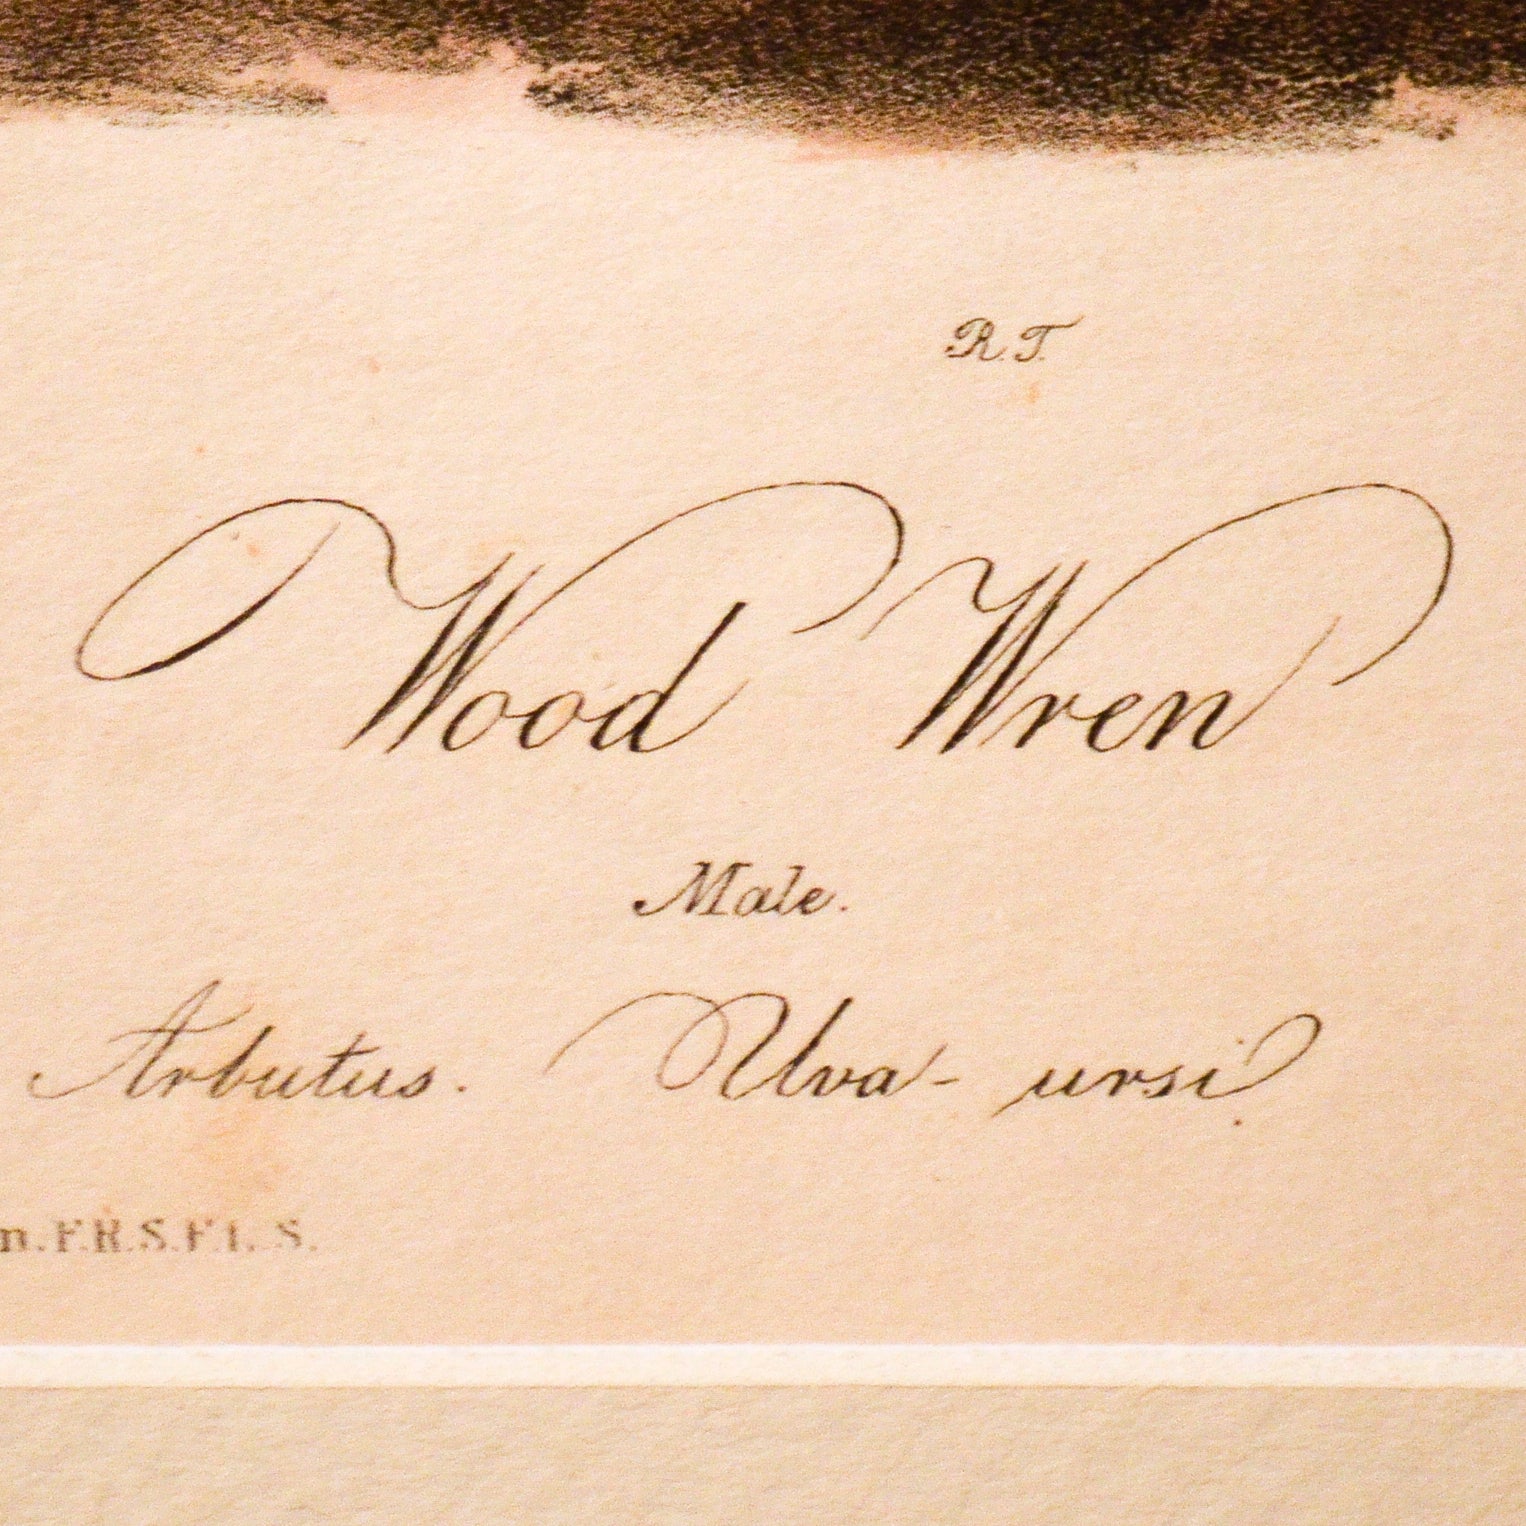 R.T.
Wood Wren
Male.
Arbutus. Uva-ursi
n. F.R.S.F.L.S.